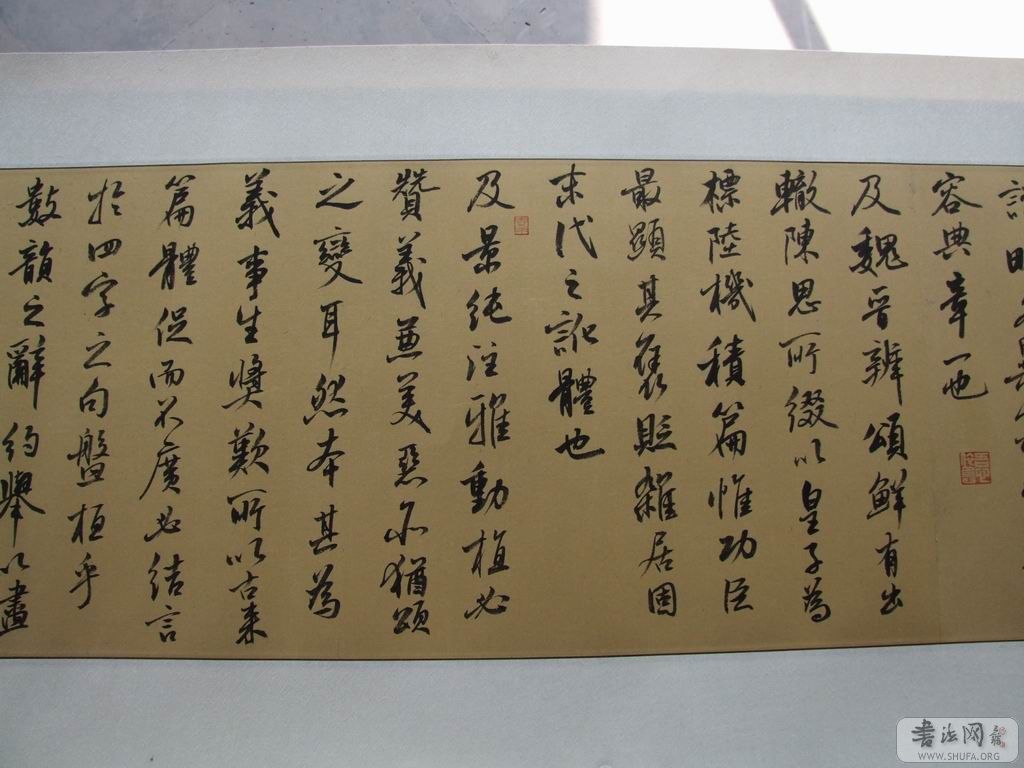 容典章一也
及魏晉辨頌鮮有出
轍陳思所綴以皇子為
標陸機積篇惟功臣
最顯其褒貶雜居固
末代之訛體也
及景純注雅動植必
贊義兼美惡亦猶頌
之變耳然本其為
義事生獎歎所以古來
篇體促而不廣必結言
於四字之句盤桓乎
數韻之辭約舉以盡
書法网
WWW.SHUFA.ORG